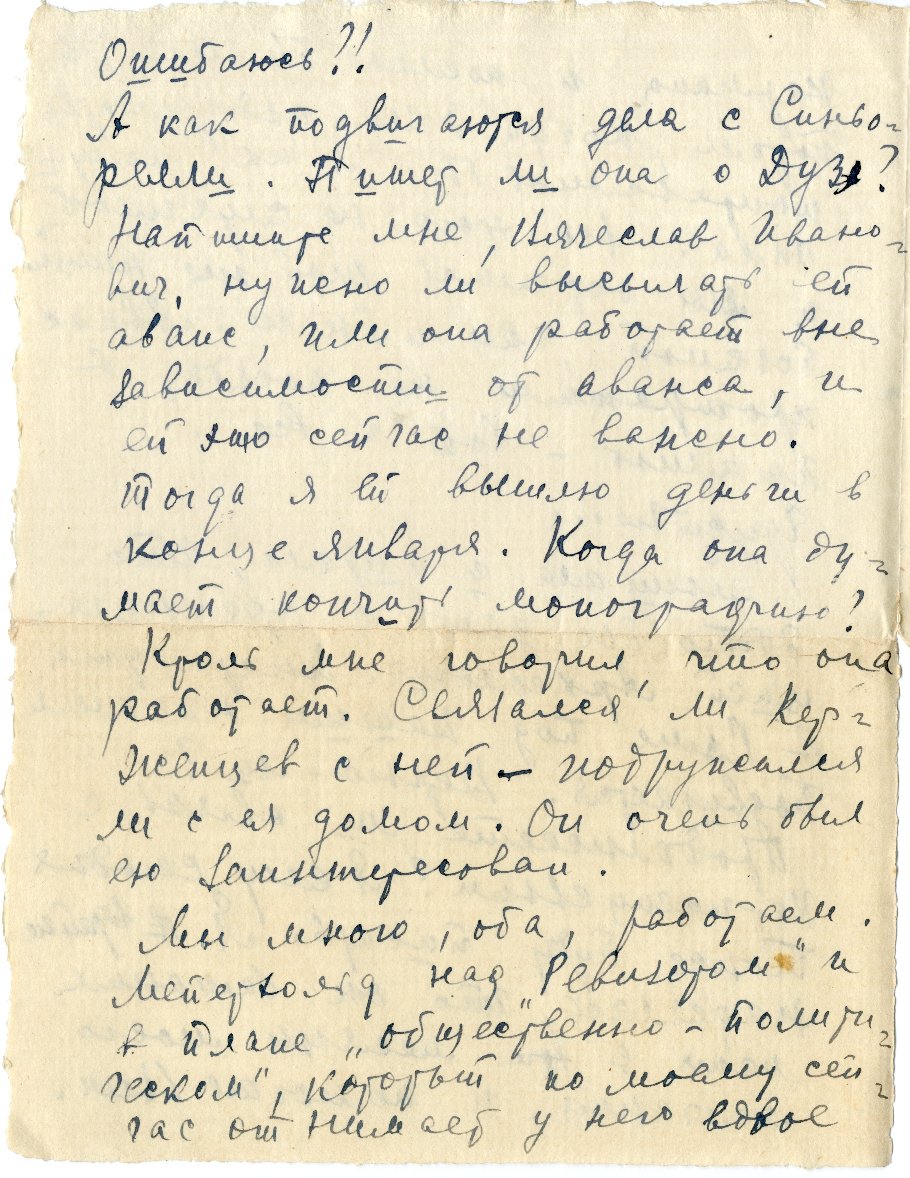 Ошибаюсь?!
А как подвигаются дела с Синьо=
релли. Пишет ли она о Дузэ?
Напишите мне, Вячеслав Ивано=
вич, нужно ли высылать ей
аванс, или она работает вне
зависимости от аванса, и
ей это сейчас не важно.
Тогда я ей вышлю деньги в
конце января. Когда она ду=
мает кончить монографию?
Кроль мне говорил, что она
работает. Связался ли Кер=
женцев с ней – подружился
ли с ея домом. Он очень был
ею заинтересован.
Мы много, оба, работаем.
Мейерхольд над „Ревизором" и
в плане „общественно – полити=
ческом", который по моему сей=
час отнимает у него вдвое